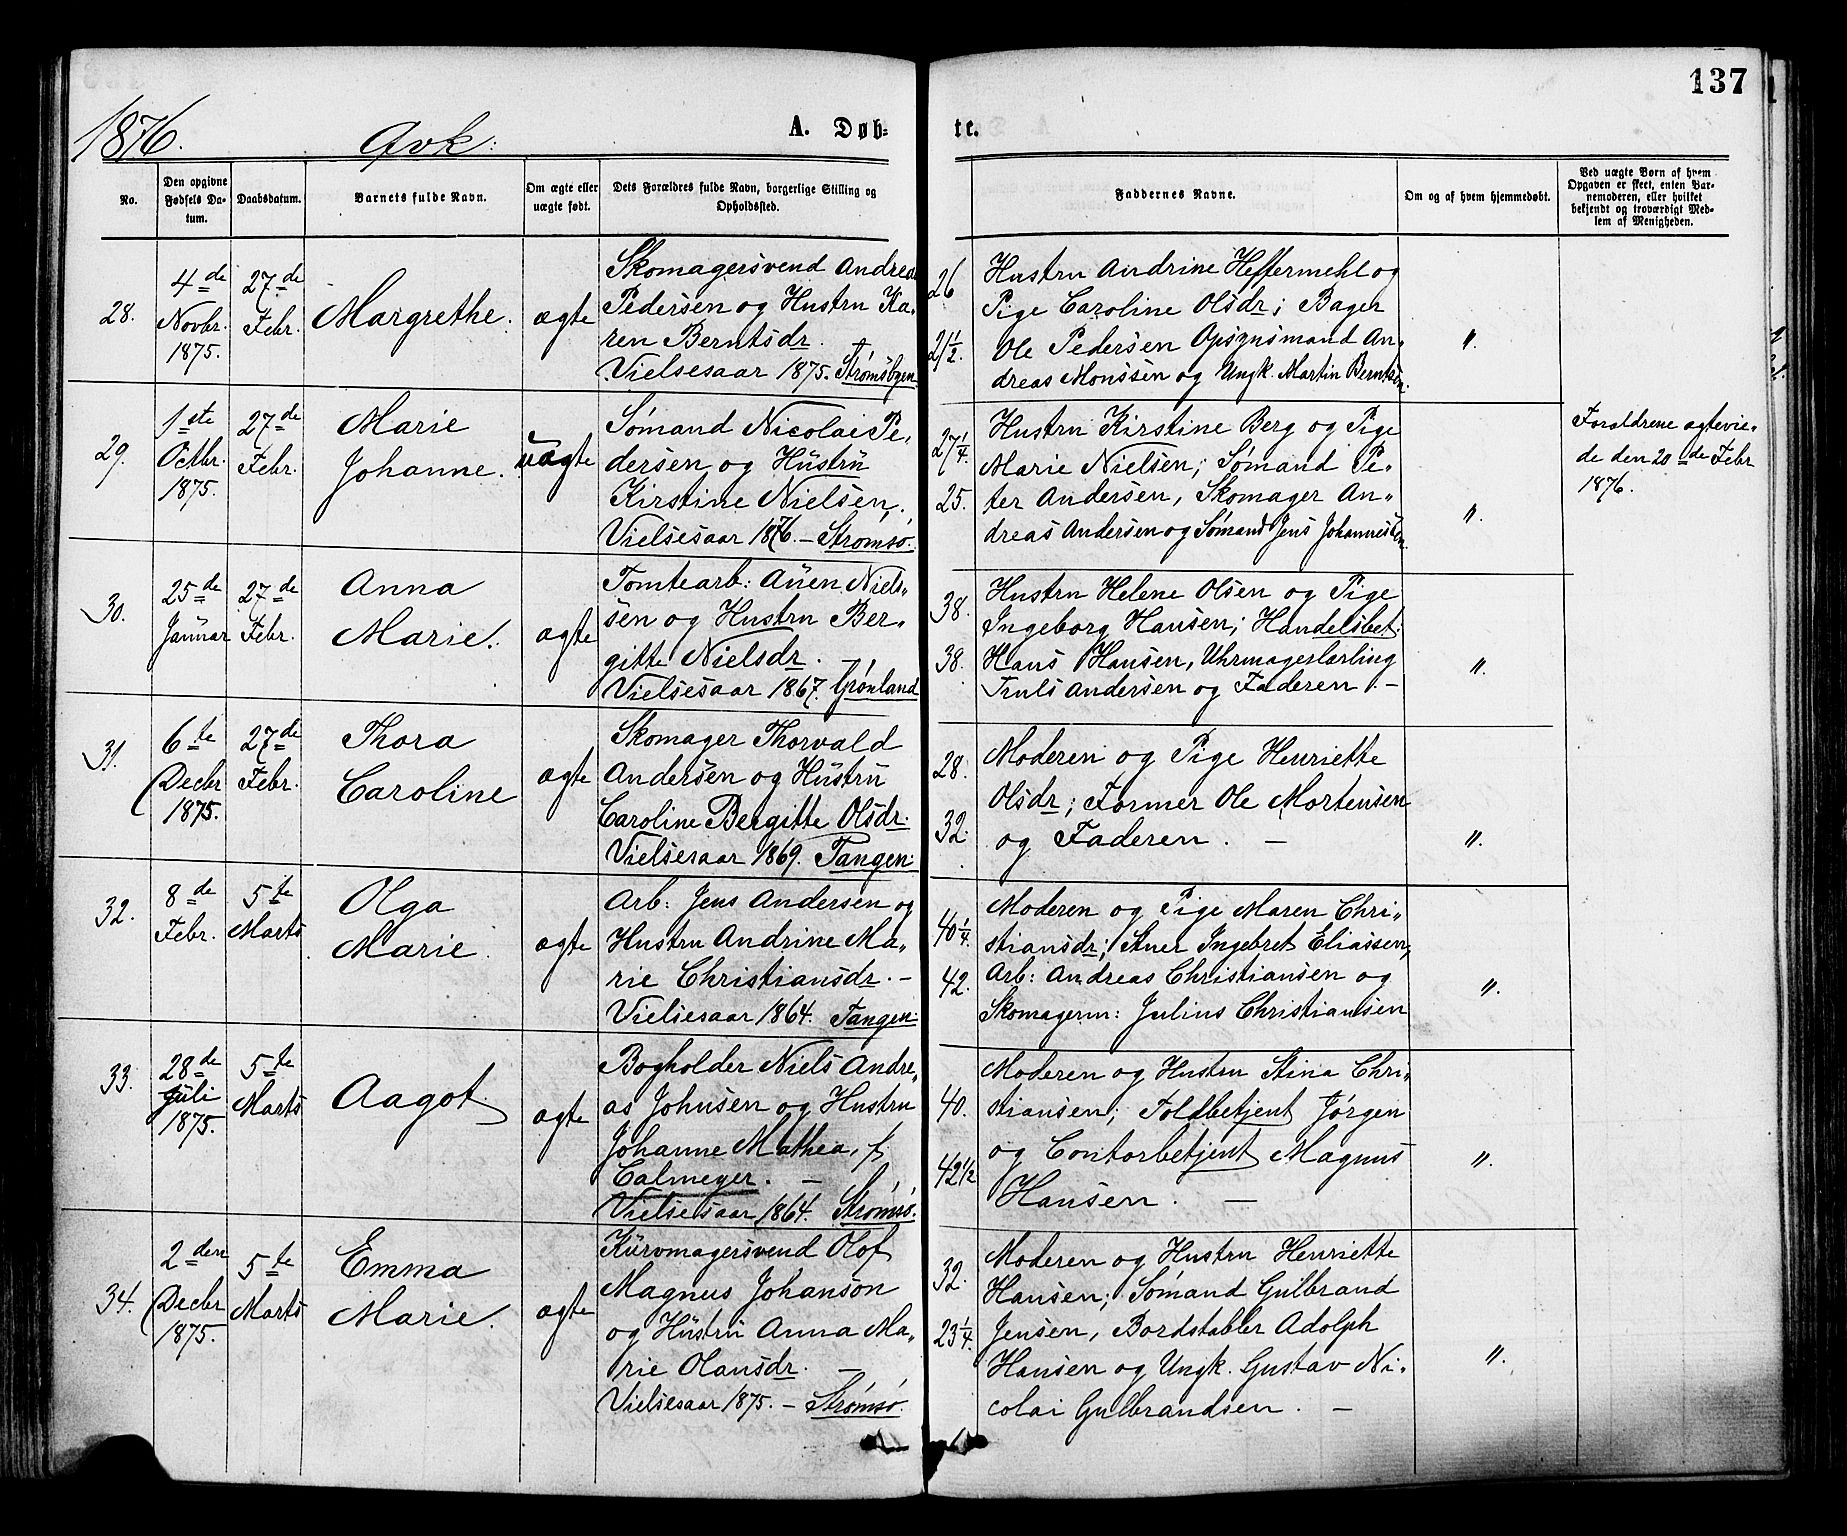 137
1876. Qvk:
A. Døb-
te.
No.
Den opgivne
Fødsels Da-
tum.
Daabsdatum.
Barnets fulde Navn.
Om ægte eller
uægte født.
Dets Forældres fulde Navn, borgerlige Stilling og
Opholdssted.
Faddernes Navne.
Om og af hvem hjemmedøbt.
Ved uægte Børn af hvem
Opgaven er skeet, enten Bar-
nemoderen, eller hvilket
bekjendt og troværdigt Med-
lem af Menigheden.
28.
4de
Novbr.
1875.
27de
Febr.
Margrethe.
ægte
Skomagersvend Andreas
Pedersen og Hustru Ka-
ren Berntsdr.
Vielsesaar 1875. Strømsbgen
26
21½.
Hustru Andrine Heffermehl og
Pige Caroline Olsdr; Bager
Ole Pedersen Opsynsmand An-
dreas Monssen og Ungk. Martin Berntsen.
"
29.
1ste
Octbr.
1875.
27de
Febr.
Marie
Johanne.
uægte
Sømand Nicolai Pe-
dersen og Hustru
Kirstine Nielsen,
Vielsesaar 1876. – Strømsø.
27¼
25.
Hustru Kirstine Berg og Pige
Marie Nielsen; Sømand Pe-
ter Andersen, Skomager An-
dreas Andersen og Sømand Jens Johannessen.
"
Forældrene ægtevie-
de den 20de Febr
1876.
30.
25de
Januar
27de
Febr.
Anna
Marie.
ægte
Tomtearb: Auen Niels-
sen og Hustru Ber-
gitte Nielsdr. –
Vielsesaar 1867. Grønland
38.
38.
Hustru Helene Olsen og Pige
Ingeborg Hansen; Handelsbet:
Hans Hansen, Uhrmagerlærling
Truls Andersen og Faderen. –
"
31.
6te
Decbr
1875.
27de
Febr.
Thora
Caroline
ægte
Skomager Thorvald
Andersen og Hustru
Caroline Bergitte Olsdr.
Vielsesaar 1869. Tangen:
28.
32.
Moderen og Pige Henriette
Olsdr; Former Ole Mortensen
og Faderen. –
"
32.
8de
Febr.
5te
Marts
Olga
Marie.
ægte
Arb: Jens Andersen og
Hustru Andrine Ma-
rie Christiansdr. –
Vielsesaar 1864. Tangen:
40¼.
42.
Moderen og Pige Maren Chri-
stiansdr; Stuer Ingebret Eliassen,
Arb: Andreas Christiansen og
Skomagerm: Julius Christiansen
"
33.
28de
Juli
1875.
5te
Marts
Aagot.
ægte
Bogholder Niels Andre-
as Johnsen og Hustru
Johanne Mathea, f.
Calmeyer. –
Vielsesaar 1864. Strømsø.
40.
42½
Moderen og Hustru Stina Chri-
stiansen; Toldbetjent Jørgen
og Contorbetjent Magnus
Hansen. –
"
34.
2den
Decbr
1875.
5te
Marts
Emma
Marie.
ægte
Kurvmagersvend Olof
Magnus Johanson
og Hustru Anna Ma-
rie Olansdr. –
Vielsesaar 1875. – Strømsø.
32.
23¼.
Moderen og Hustru Henriette
Hansen; Sømand Gulbrand
Jensen, Bordstabler Adolph
Hansen og Ungk. Gustav Ni-
colai Gulbrandsen. –
"